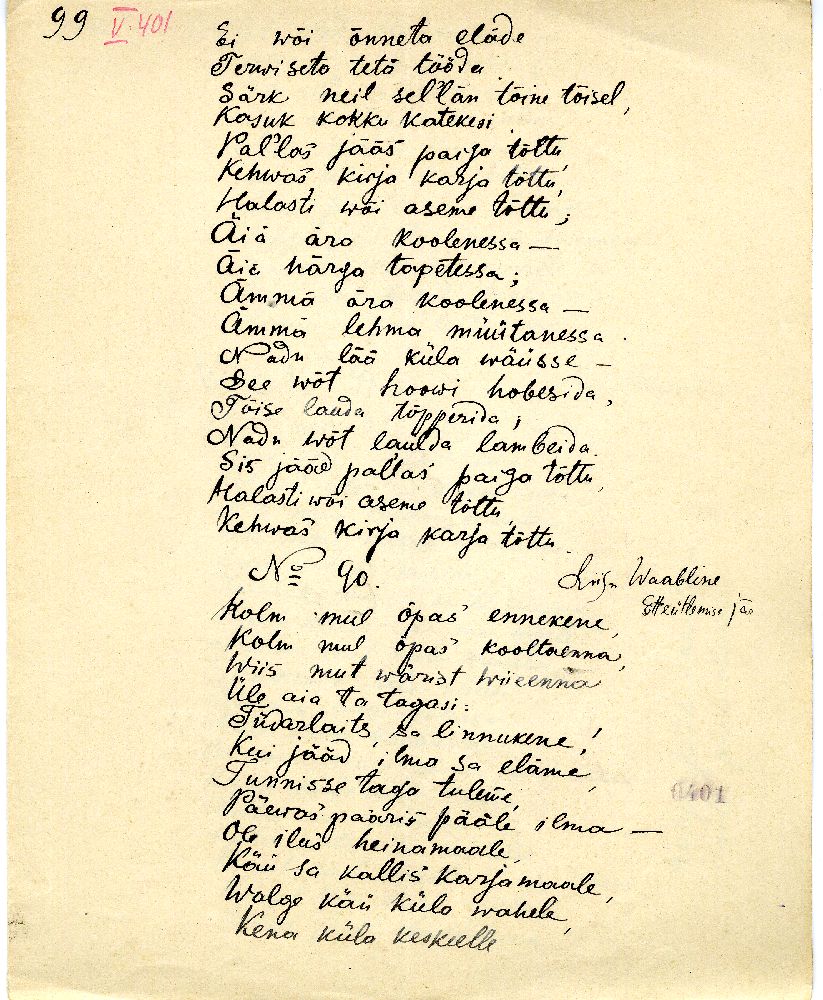 99 V. 401
Ei wõi õnneta eläde
Terwiseta tetä tööda
Särk neil sel'län tõine tõisel,
Kasuk kokku katekesi.
Pal'las jääs paiga tõttu,
Kehwas kirja karja tõttu,
Halasti wõi aseme tõttu;
Äiä ära koolenessa —
Äiä härga tapetessa;
Ämmä ära koolenessa —
Ämmä lehma müütanessa.
Nadu lää küla wäüsse —
See wõt hoowi hobesida,
Tõise lauda tõpperida;
Nadu wõt laulda lambeida.
Sis jääd pallas paiga tõttu,
Halasti wõi aseme tõttu,
Kehwas kirja karja tõttu.
No 90.
Waabline
Kolm mul õpas ennekene,
Kolm mul õpas kooltaenna,
Wiis mut wärist wiieenna
Üle aia ta tagasi:
Tüdarlaits, sa linnukene!
Kui jääd ilma sa elame,
Tunnisse taga tuleme,
Päewas pääris pääle ilma —
Ole ilus heinamaale,
Käü sa kallis karjamaale,
Walge käü küla wahele,
Kena küla keskeelle
0401